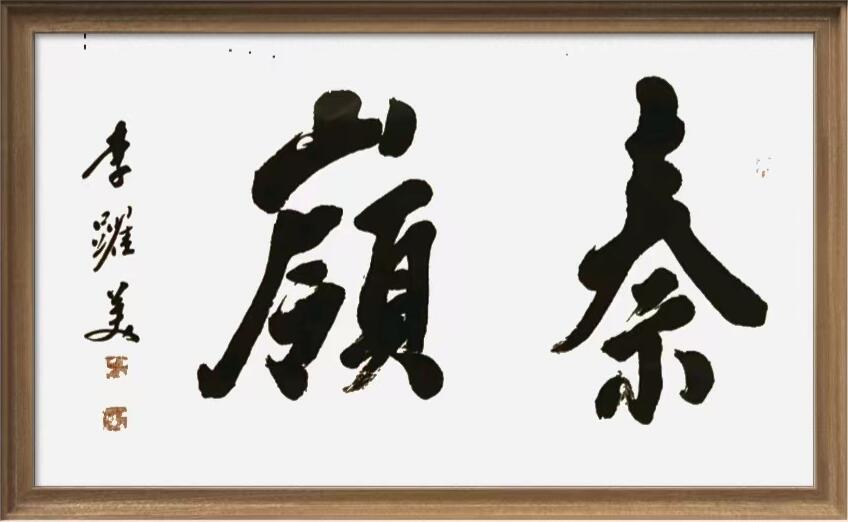 秦嶺
李躍美